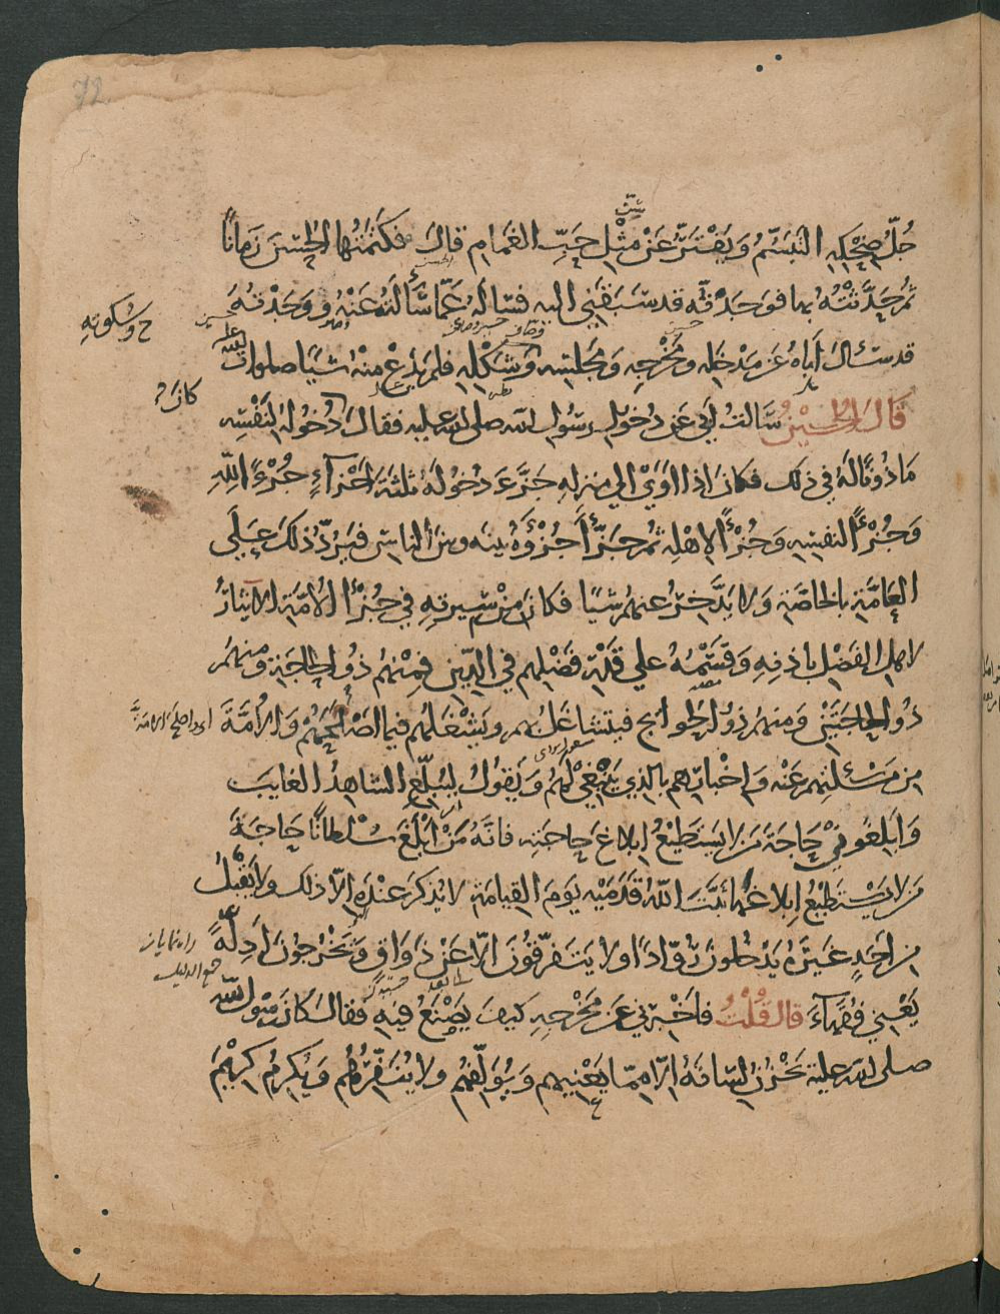 72
جُلّ ضِحْكِهِ التَبَسّمُ وَيَفْتَرّ عَنْ مِثْلِ حَبّ الغَمامِ قالَ فكَتَمْتُها الحُسَيْنَ زَمانًا
ثُمّ حَدَّثتُهُ بها فوَجَدْتُه قد سَبَقَني اليه فسَالَهُ عَمّا سَأَلتُهُ عَنْهُ ووَجَدْتُهُ
قد سَأَلَ أباهُ عَنْ مَدْخَلِهِ ومَخْرَجِهِ وَمَجْلِسِه وَشَكْلِهِ فلم يَدَعْ مِنْهُ شَيْئًا صلوات الله عليه
قالَ الحُسَيْنُ سَالتُ أَبي عَن دُخولِ رسُول الله صلى الله عليه فقالَ دُخُولُهُ لنَفْسِه
مَاذُونًا لَهُ في ذلك فكان اذا اَوَيْ الي منزلِهِ جَزَّءَ دُخُولَهُ ثلثةَ اَجْزآءٍ جُزْءً للهِ
وَجُزْءًا لنفسِهِ وَجُزْءًا لِاهْلِه ثُم جَزّأَ جُزْؤَهُ بينَه وبينَ الناسِ فيَرُدّ ذلكَ عَلَي
العَامَّةِ بالخاصّة وَلا يَدَّخِرُ عنهُم شيًا فكانَ مِنْ سِيرتِهِ في جُزْأِ الأمّةِ الايثارُ
لاهلِ الفَضْلِ باذنِهِ وَقَسْمُهُ علي قَدْرِ فَضْلِهم في الدّينِ فمِنْهُم ذوُ الحاجَةِ ومنهمُ
ذوُ الحاجَتَيْنِ وَمنهمُ ذوُ الحَوائج فيتشاغَلُ بهم ويَشْغَلُهُم فيما اَصْلَحَهُمْ وَالأُمَّةَ
من مَسْئلتِهم عَنْه وَاِخْبارِهم بالذي يَنْبَغي لَهُم وَيَقولُ ليُبَلّغِ الشاهدُ الغايبَ
وَابلِغوني حاجَةَ مَن لا يَستَطيعُ ابلاغَ حاجَتِه فانَّهُ مَنْ اَبْلَغَ سُلْطانًا حَاجَةَ
مَن لا يَسْتَطيعُ اِبلاغَها ثبَّتَ اللهُ قَدَمَيْه يَومَ القيامةِ لا يُذكَرُ عِنْدَه اِلاّ ذلك ولا يَقْبَلُ
مِن اَحَدٍ غَيْرَهُ يَدْخُلونَ رُوَّادًا ولا يَتَفرّقُونَ الاّ عَنْ ذَوَاقٍ وَيَخْرُجُونَ اَدِلَّةً
يَعْني فُقَهآءَ قال قُلْتُ فاَخْبِرْني عَن مَخْرَجِهِ كيفَ يَصْنَعُ فيه فقالَ كانَ رسُولُ الله
صلى الله عليه يَخْزُنُ لِسَانَهُ الاّ مِمّا يَعْنِيهم وَيُوَلِّفُهُم ولا يُنَفِّرُهُم وَيُكرِمُ كَريْمَ
ح وَسُكوتِهِ
كانَ
راه نمايان
جمع الدليل